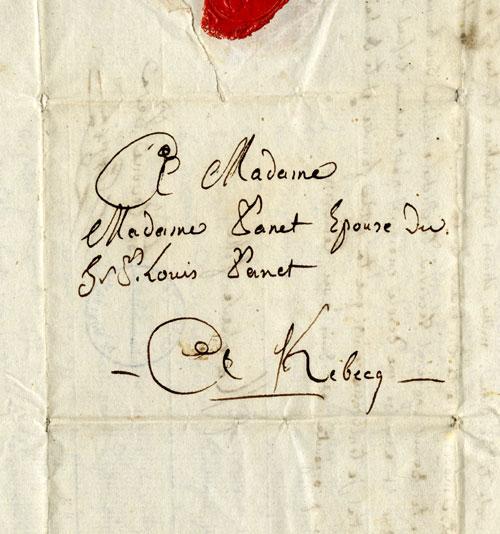 A Madame
Madame Panet Epouse Du
Sr. Louis Panet
A Kebecq